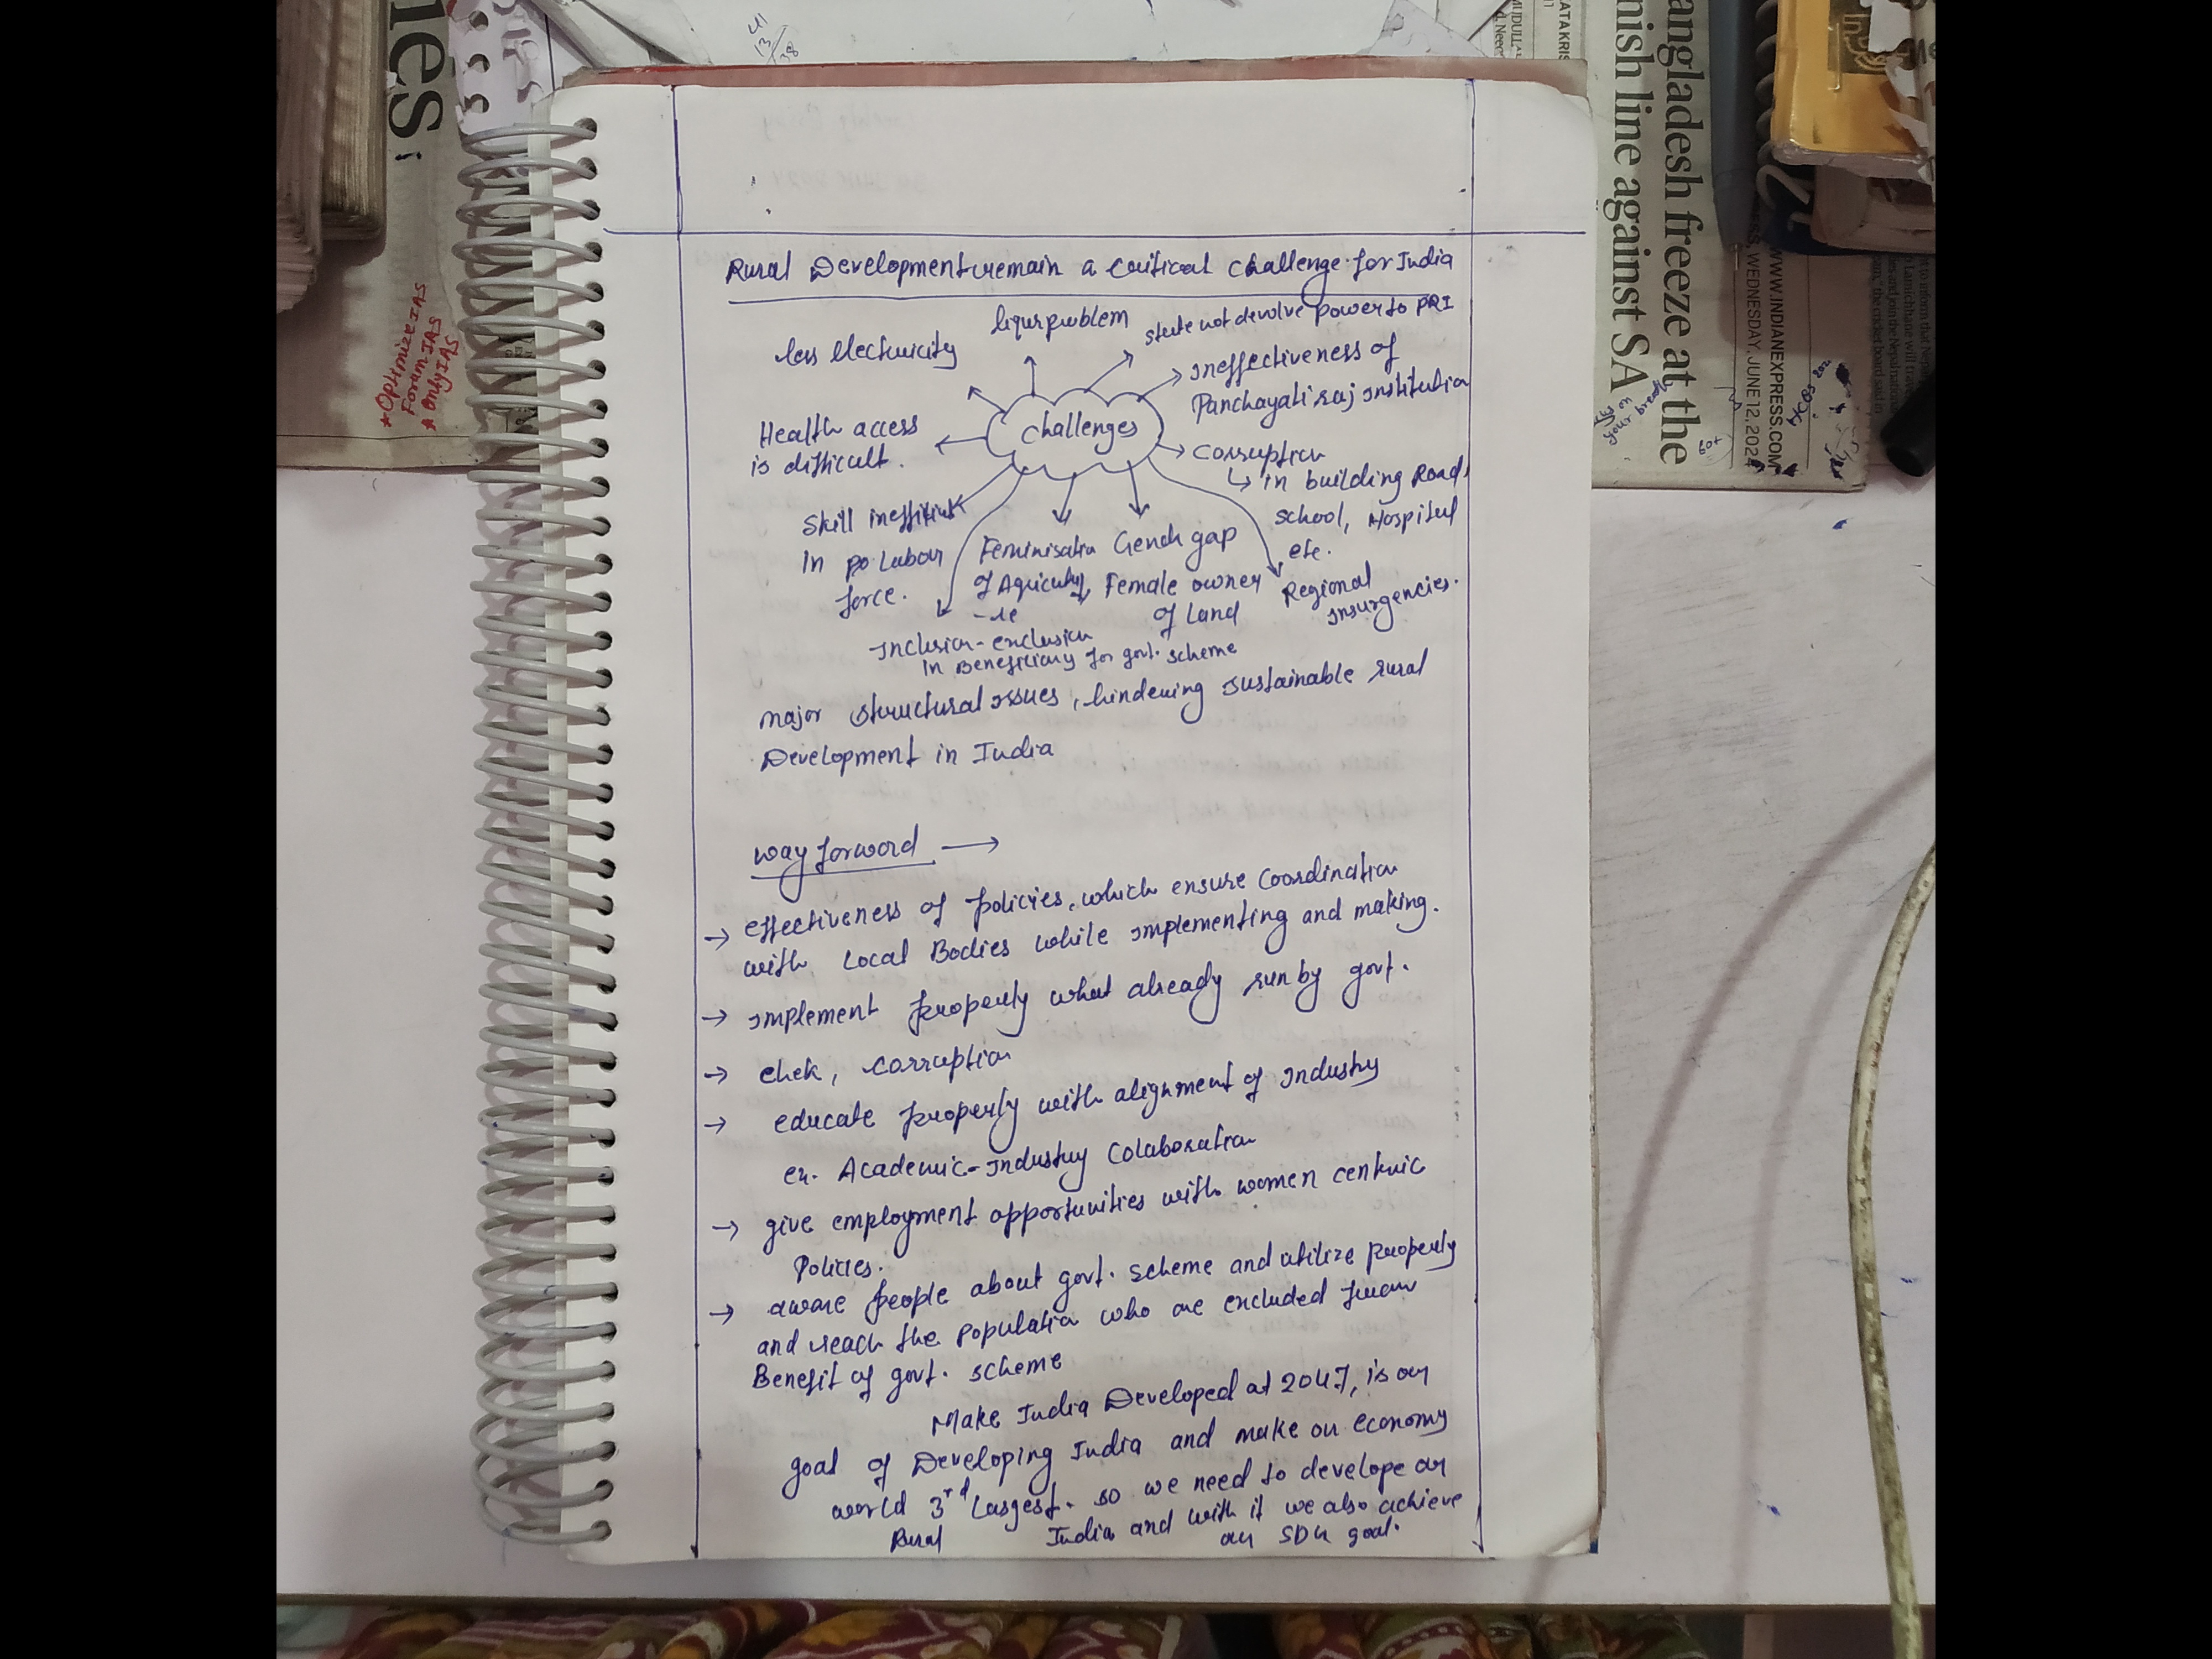 Rural Development remain a critical challenge for India
liqur problem
state not devolve power to PRI
less electricity
ineffectiveness of
Panchayati raj institution
challenges
Health access
is difficult.
corruption
↳ in building Road,
school, Hospital
etc.
Skill
In Labour
force.
Feminisation
of Agricultu
-re
Gende gap
Female owner
of Land
Regional
insurgencies.
Inclusion-exclusion
In Beneficiary for govt. scheme
major structural issues, hindering sustainable rural
Development in India
way forword →
→ effectiveness of policies, which ensure coordination
with Local Bodies while implementing and making.
→ implement properly what already run by govt.
→ chek, corruption
→ educate properly with alignment of industry
ex. Academic-industry Colaboration
→ give employment opportunities with women centric
Policies.
→ aware people about govt. scheme and utilize properly
and reach the population who are excluded from
Benefit of govt. scheme
Make India Developed at 2047, is our
goal of Developing India and make our economy
world 3rd largest. so we need to develope our
Rural India and with it we also achieve
our SDG goal.
ies
angladesh freeze at the
nish line against SA
WWW.INDIANEXPRESS.COM
WEDNESDAY, JUNE 12, 2024
* Optimize IAS
Forum IAS
* Only IAS